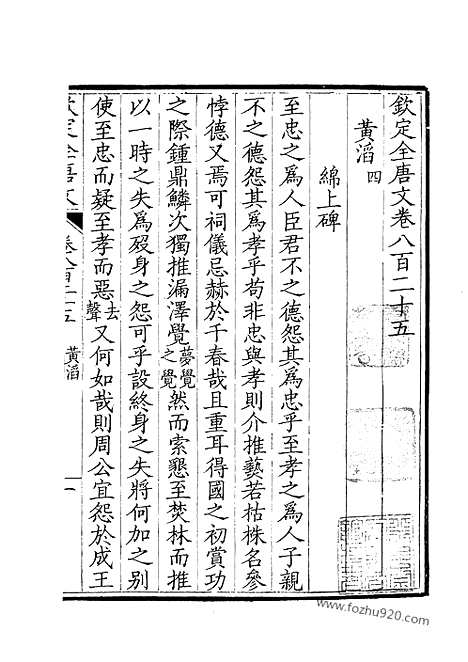 欽定全唐文卷八百二十五
黃滔 四
綿上碑
至忠之為人臣君不之德怨其為忠乎至孝之為人子親
不之德怨其為孝乎苟非忠與孝則介推藝若枯株名參
悖德又焉可祠儀忌赫於千春哉且重耳得國之初賞功
之際鍾鼎鱗次獨推漏澤覺夢覺之覺然而索懇至焚林而推
以一時之失為歿身之怨可乎設終身之失將何加之別
使至忠而疑至孝而惡去聲又何如哉則周公宜怨於成王
欽定全唐文 卷八百二十五 黃滔 一
www.fozhu920.com